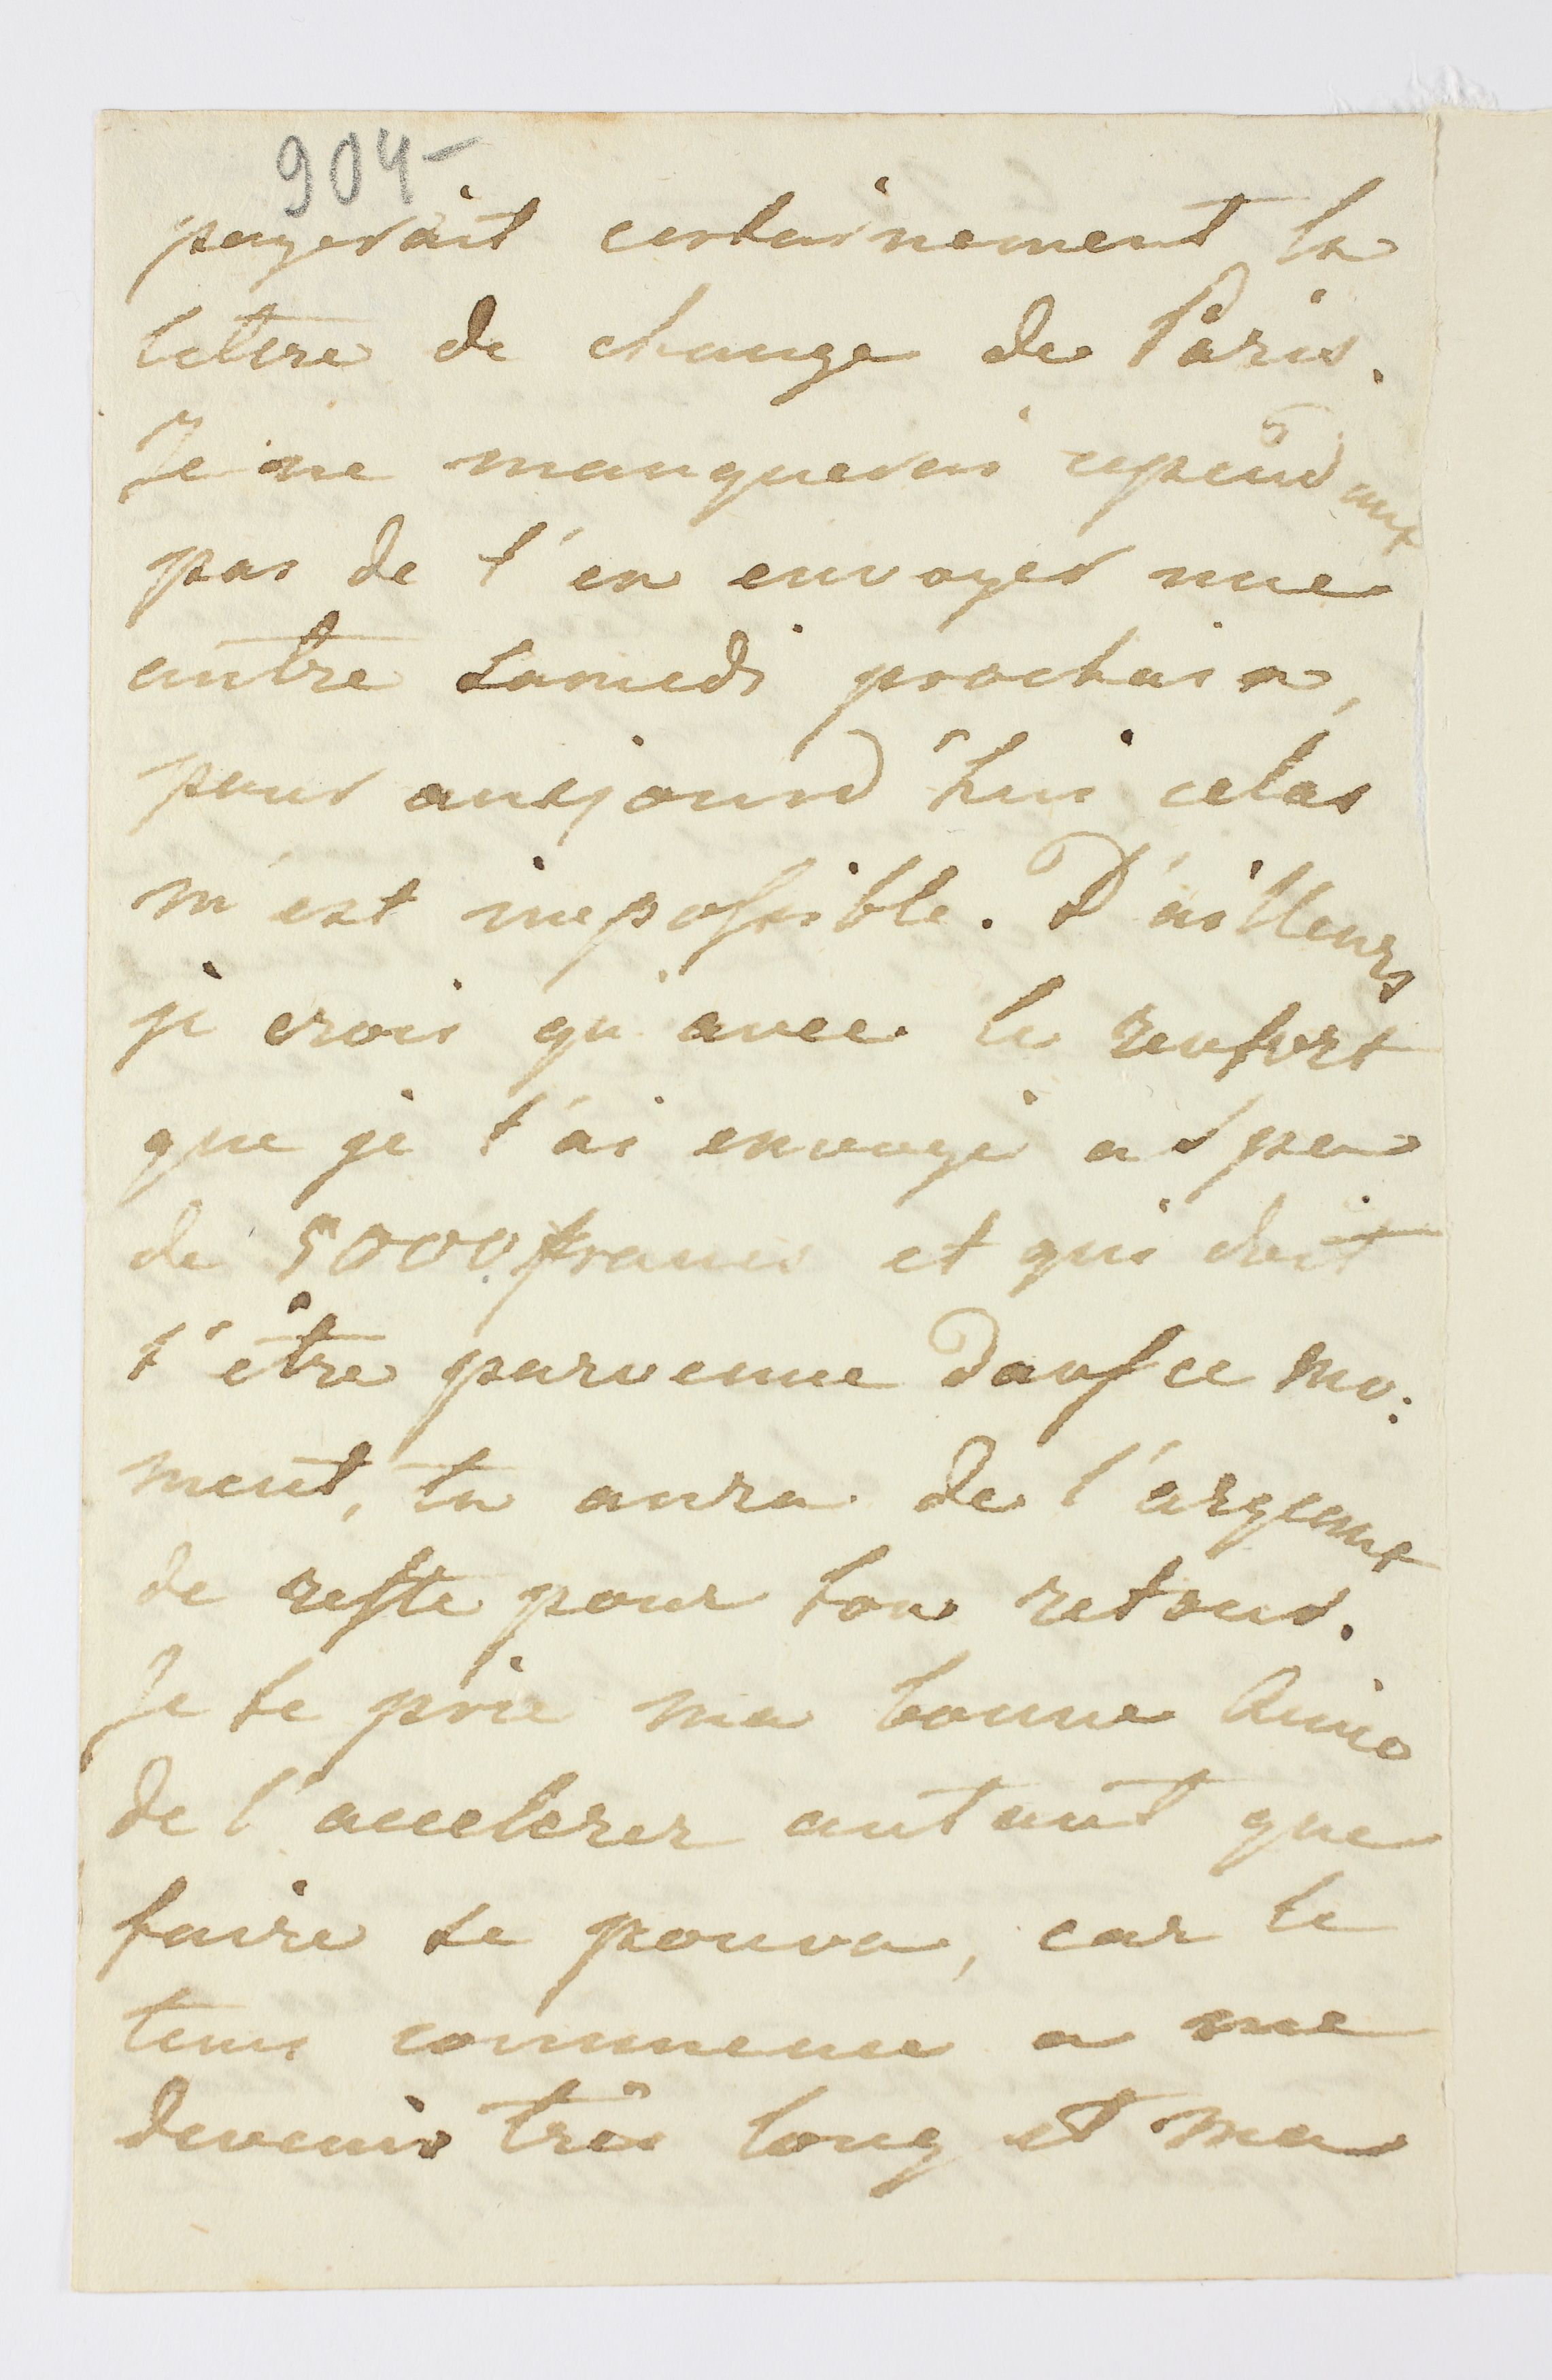 904-
payerait certainement la
lettre de change de Paris.
Je ne manquerai cependant
pas de t'en envoyer une
autre Samedi prochain,
pour aujourd'hui cela
m'est impossible. D'ailleurs
je crois qu'avec le renfort
que je t'ai envoyé a Spa
de 5000 francs et qui doit
t'être parvenue dans ce mo:
ment, tu aura de l'argent
de reste pour ton retour.
Je te prie ma bonne Amie
de l'accelerer autant que
faire se pouva, car le
tems commence a me
devenir très long et ma